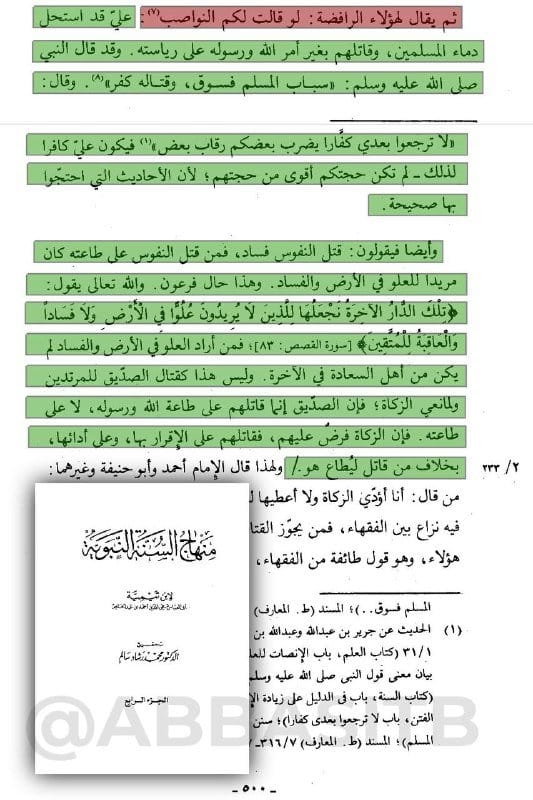 ثم يقال لهؤلاء الرافضة: لو قالت لكم النواصب(٧): عليّ قد استحل
دماء المسلمين، وقاتلهم بغير أمر الله ورسوله على رياسته. وقد قال النبي
صلى الله عليه وسلم: «سباب المسلم فسوق، وقتاله كفر»(٨). وقال:
«لا ترجعوا بعدي كفَّارا يضرب بعضكم رقاب بعض»(١) فيكون عليّ كافرا
لذلك ـ لم تكن حجتكم أقوى من حجتهم؛ لأن الأحاديث التي احتجّوا
بها صحيحة.
وأيضا فيقولون: قتل النفوس فساد، فمن قتل النفوس على طاعته كان
مريدا للعلو في الأرض والفساد. وهذا حال فرعون. والله تعالى يقول:
﴿تِلْكَ الدَّارُ الآخِرَةُ نَجْعَلُهَا لِلَّذِينَ لَا يُرِيدُونَ عُلُوًّا فِي الْأَرْضِ وَلَا فَسَاداً
وَالْعَاقِبَةُ لِلْمُتَّقِينَ﴾ [سورة القصص: ٨٣]؛ فمن أراد العلو في الأرض والفساد لم
يكن من أهل السعادة في الآخرة. وليس هذا كقتال الصدّيق للمرتدين
ولمانعي الزكاة؛ فإن الصدّيق إنما قاتلهم على طاعة الله ورسوله، لا على
طاعته. فإن الزكاة فرضٌ عليهم، فقاتلهم على الإقرار بها، وعلى أدائها،
بخلاف من قاتل ليُطاع هو./ ولهذا قال الإمام أحمد وأبو حنيفة وغيرهما: ٢/ ٢٣٣
من قال: أنا أؤدّي الزكاة ولا أعطيها
فيه نزاع بين الفقهاء، فمن يجوّز
هؤلاء، وهو قول طائفة من الفقهاء،
منهاج السنة النبوية
لابن تيمية
تحقيق
الدكتور محمد رشاد سالم
الجزء الرابع
المسلم فسوق..)؛ المسند (ط. المعارف)
(١) الحديث عن جرير بن عبدالله وعبدالله بن
٣١/١ (كتاب العلم، باب الإنصات
بيان معنى قول النبي صلى الله عليه
(كتاب السنة، باب في الدليل على زيادة
الفتن، باب لا ترجعوا بعدي كفارا)؛ سنن
المسلم)؛ المسند (ط. المعارف) ٣١٦/٧
@ABBASITB
ـ ٥٠٠ ـ